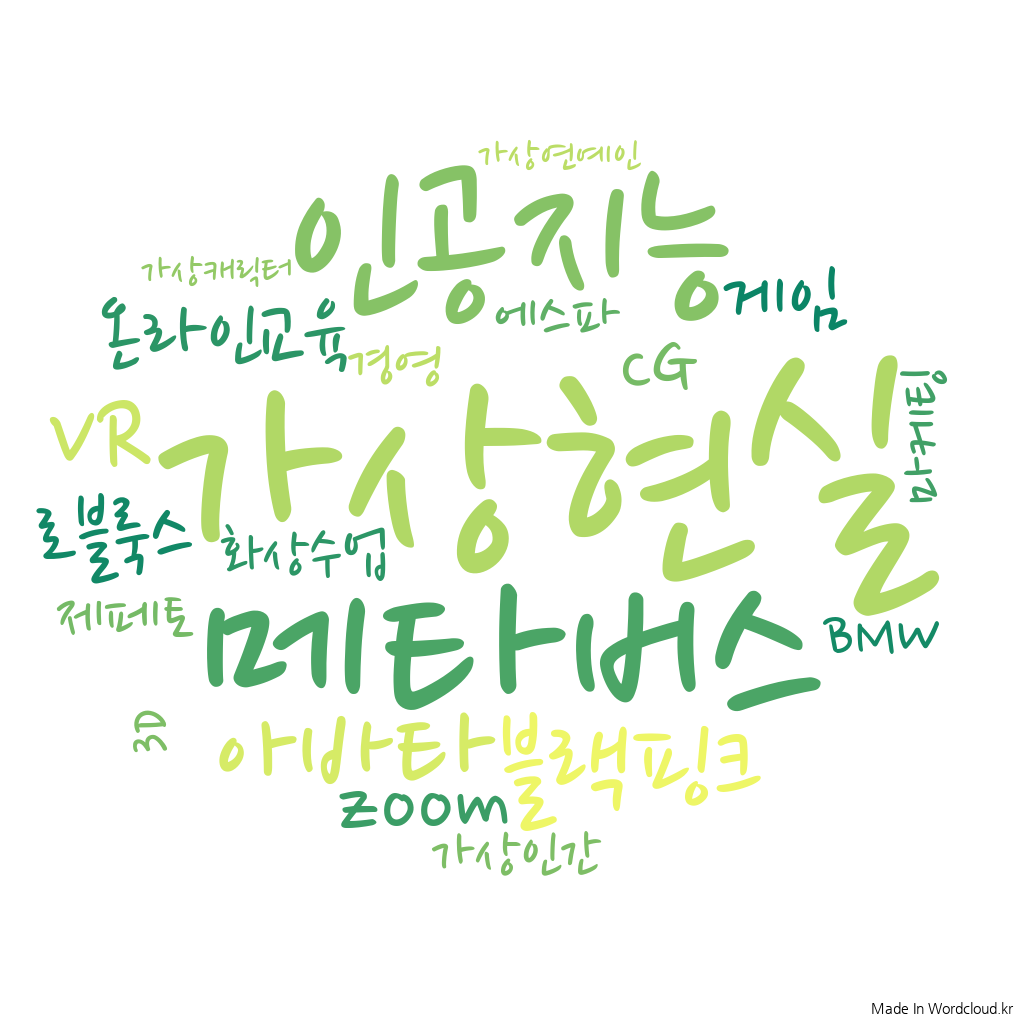 가상연예인
인공지능
가상캐릭터
온라인교육
에스파
게임
경영
CG
마케팅
VR
가상현실
로블룩스
화상수업
제페토
메타버스
BMW
3D
아바타
블랙핑크
zoom
가상인간
Made In Wordcloud.kr